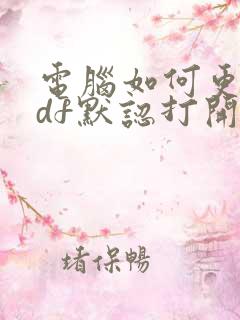 電腦如何更
df默認打開
堵保暢